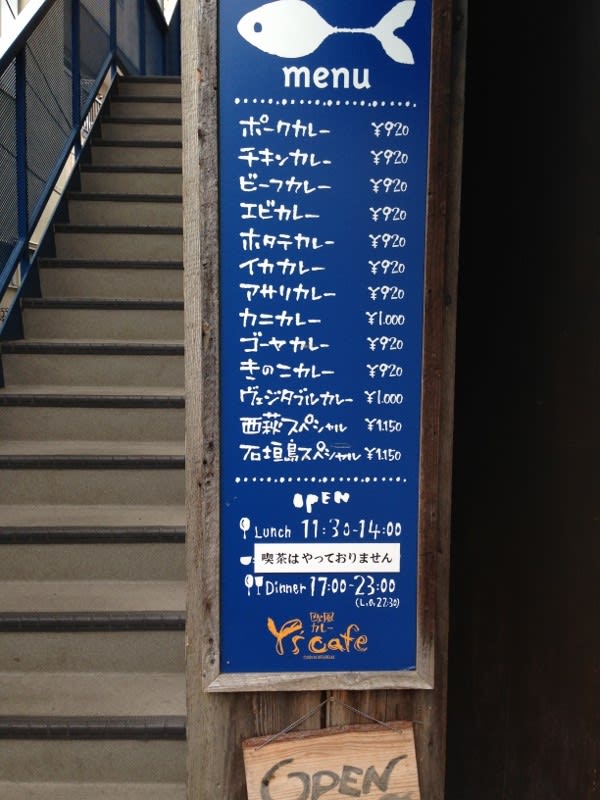 menu
ポークカレー ¥920
チキンカレー ¥920
ビーフカレー ¥920
エビカレー ¥920
ホタテカレー ¥920
イカカレー ¥920
アサリカレー ¥920
カニカレー ¥1.000
ゴーヤカレー ¥920
きのこカレー ¥920
ヴェジタブルカレー ¥1.000
西荻スペシャル ¥1.150
石垣島スペシャル ¥1.150
OPEN
Lunch 11:30~14:00
喫茶はやっておりません
Dinner 17:00~23:00
(L.O.22:30)
欧風
カレー
Y's cafe
OPEN